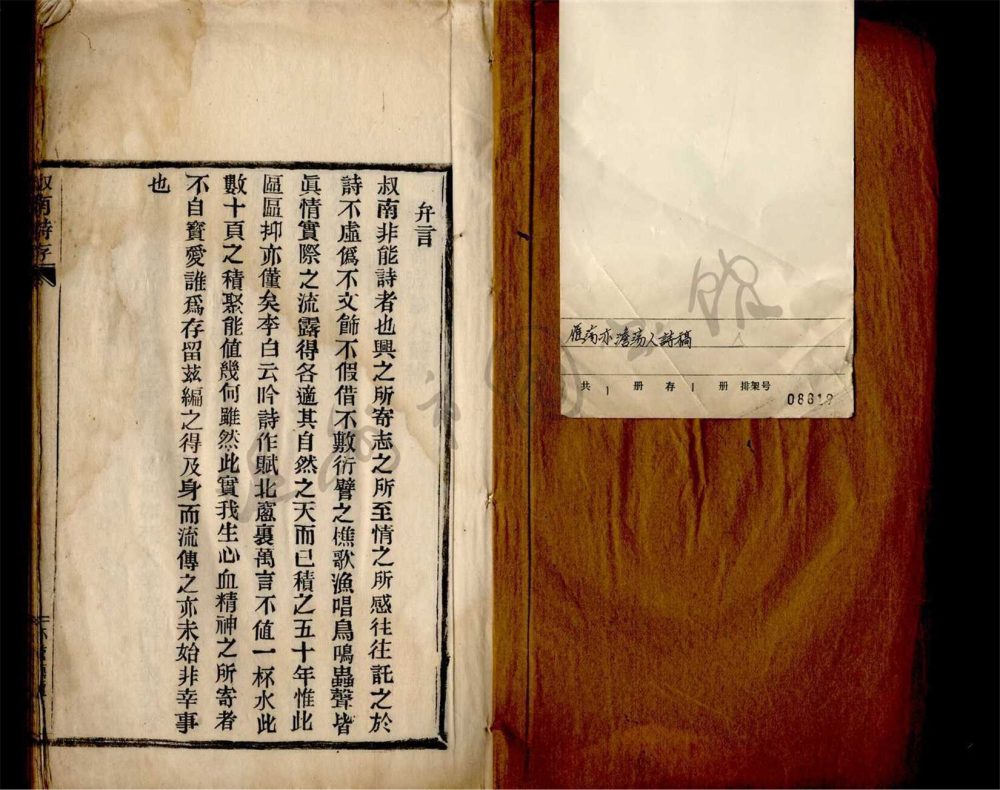 弁言
叔南非能詩者也興之所寄志之所至情之所感往往託之於
詩不虛僞不文飾不假借不敷衍譬之樵歌漁唱鳥鳴蟲聲皆
眞情實際之流露得各適其自然之天而已積之五十年惟此
區區抑亦僅矣李白云吟詩作賦北窻裏萬言不值一杯水此
數十頁之積聚能值幾何雖然此實我生心血精神之所寄者
不自寶愛誰爲存留玆編之得及身而流傳之亦未始非幸事
也
叔南詩存
雁南亦澹蕩人詩稿
共 1 册 存 1 册 排架号
08619